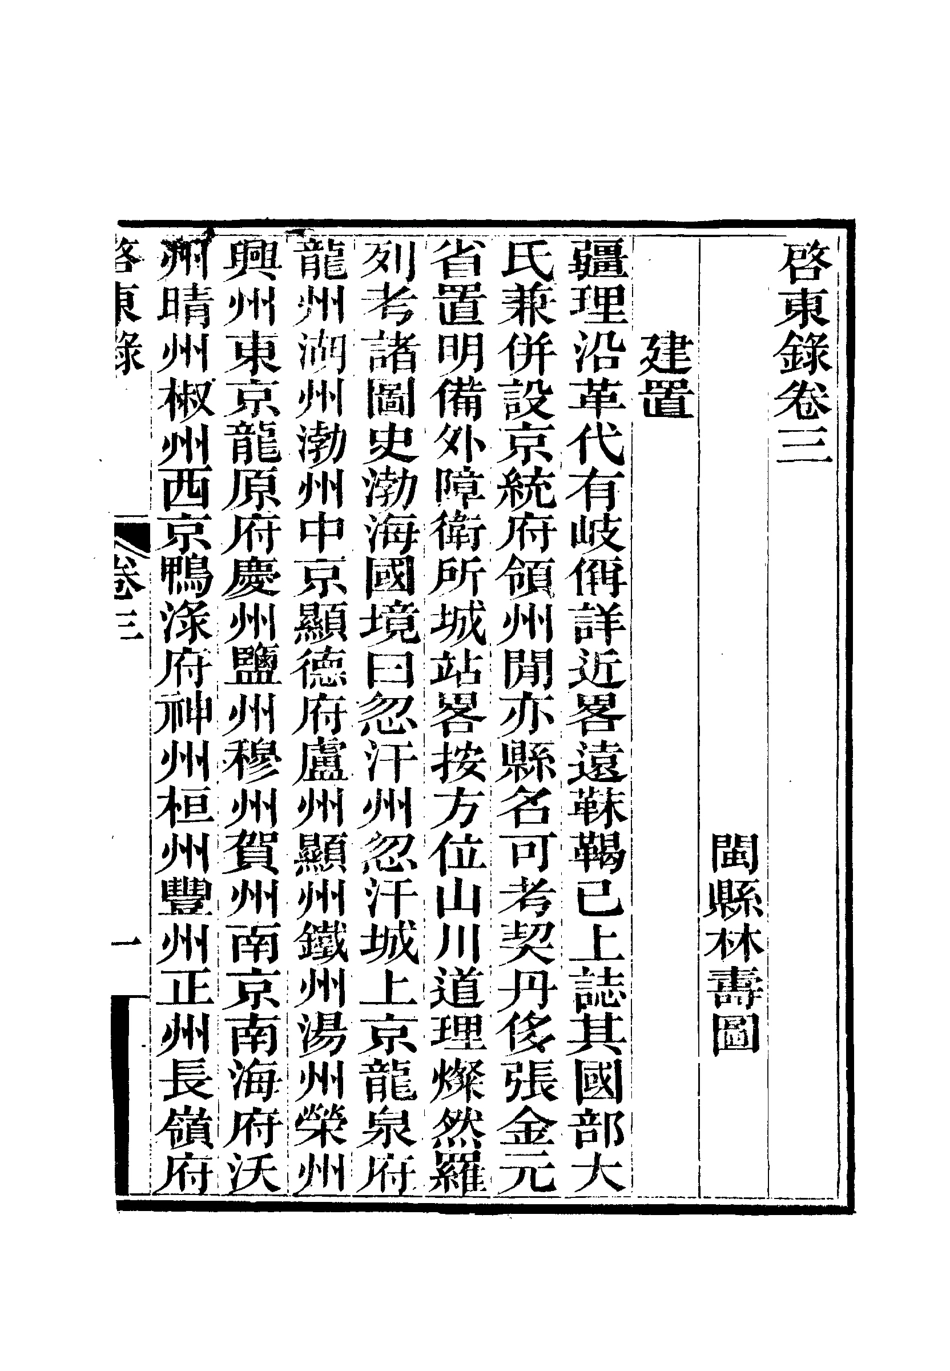 啓東錄卷三
閩縣林壽圖
建置
疆理沿革代有岐偁詳近畧遠靺鞨已上誌其國部大
氏兼併設京統府領州閒亦縣名可考契丹侈張金元
省置明備外障衛所城站畧按方位山川道理燦然羅
列考諸圖史渤海國境曰忽汗州忽汗城上京龍泉府
龍州湖州渤州中京顯德府盧州顯州鐵州湯州榮州
興州東京龍原府慶州鹽州穆州賀州南京南海府沃
州晴州椒州西京鴨淥府神州桓州豐州正州長嶺府
啓東錄 卷三 一